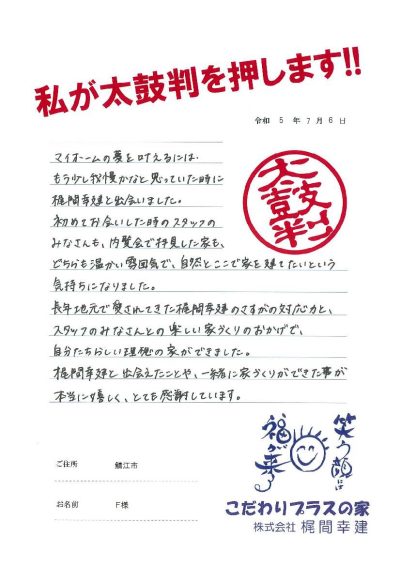 私が太鼓判を押します!!
令和 5 年 7 月 6 日
マイホームの夢を叶えるには、
もう少し我慢かなと思っていた時に
梶間幸建と出会いました。
初めてお会いした時のスタッフの
みなさんも、内覧会で拝見した家も、
どちらも温かい雰囲気で、自然とここで家を建てたいという
気持ちになりました。
長年地元で愛されてきた梶間幸建のさすがの対応力と、
スタッフのみなさんとの楽しい家づくりのおかげで、
自分たちらしい理想の家ができました。
梶間幸建と出会えたことや、一緒に家づくりができた事が
本当に嬉しく、とても感謝しています。
太鼓判
ご住所 鯖江市
お名前 F様
笑う顔には
福が来る
こだわりプラスの家
株式会社 梶間幸建